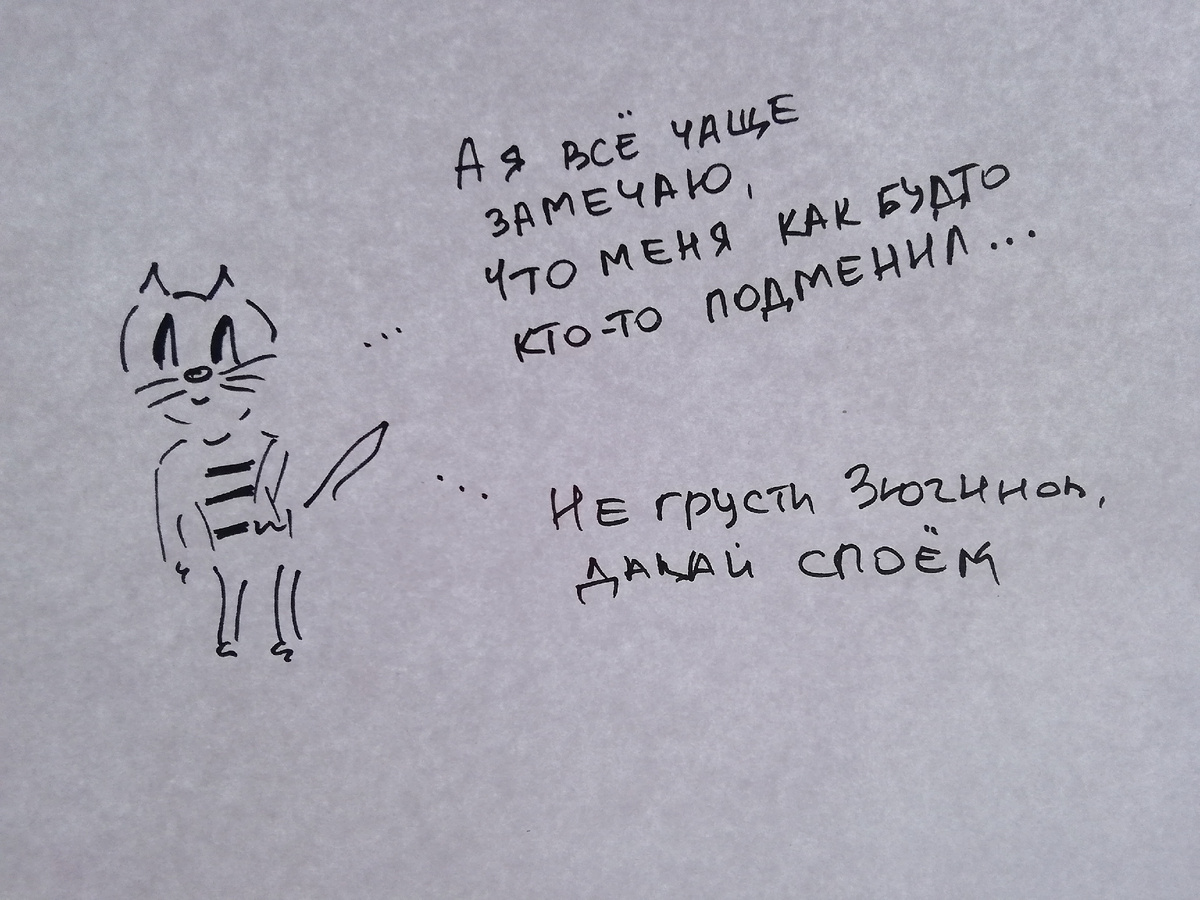 А я всё чаще
замечаю,
что меня как будто
кто-то подменил...
...
... Не грусти Зюгинон,
давай споём